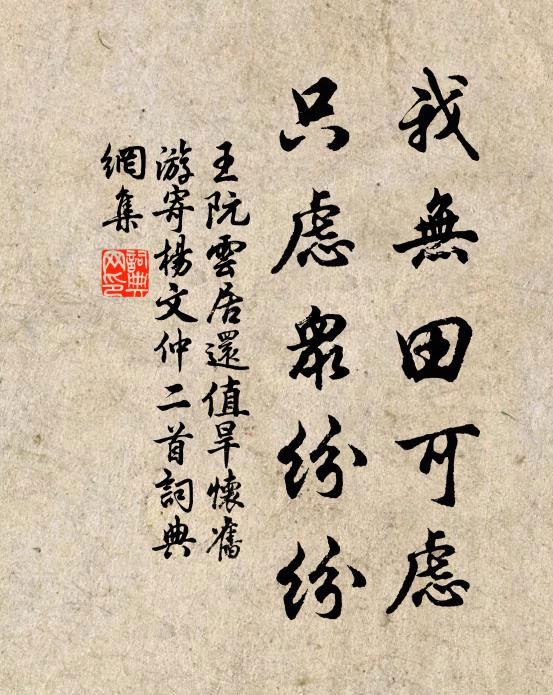 我無田可慮
只慮眾紛紛
王阮雲居還值旱懷舊
游寄楊文仲二首詞典
網集
詞典
网印